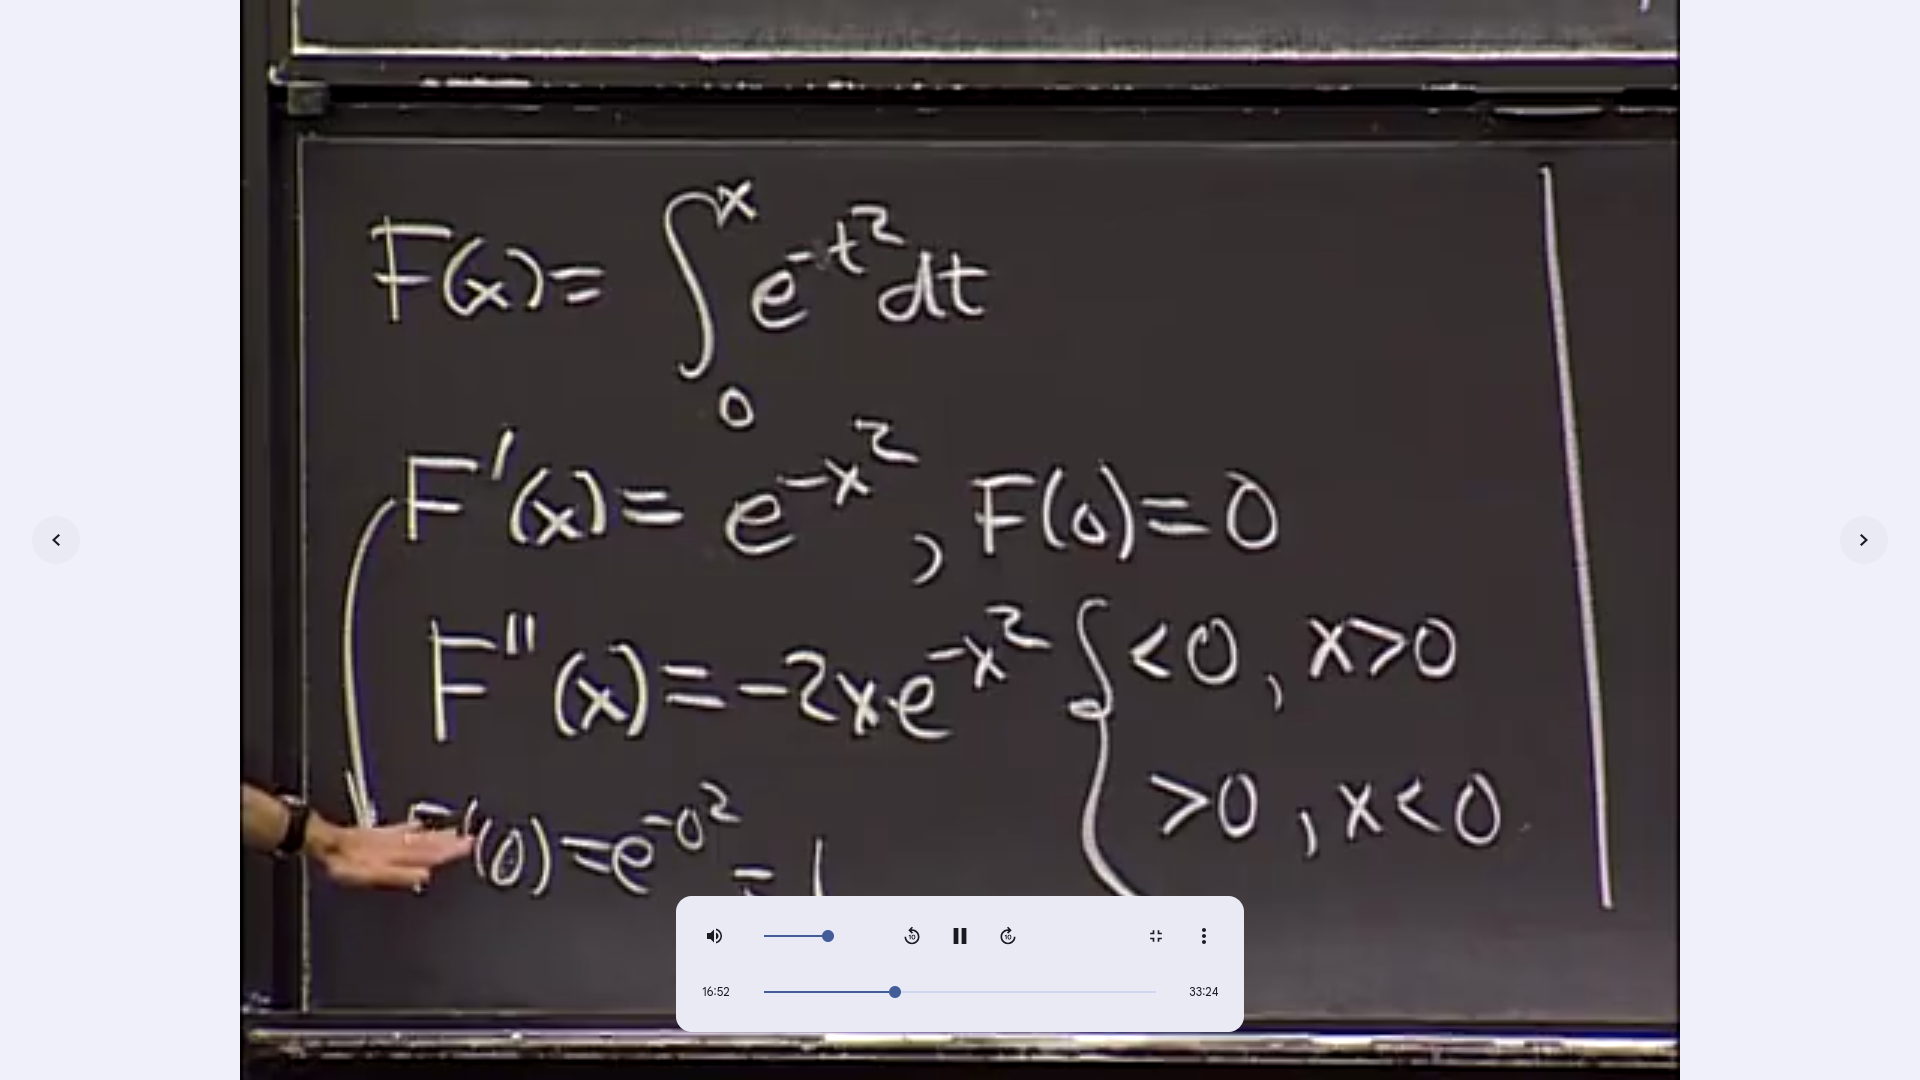 F(x) = ∫₀ˣ e^{-t²} dt
F'(x) = e^{-x²}, F(0) = 0
F''(x) = -2xe^{-x²} { <0, x>0
>0, x<0
F'(0) = e^{-0²} = 1
16:52 33:24